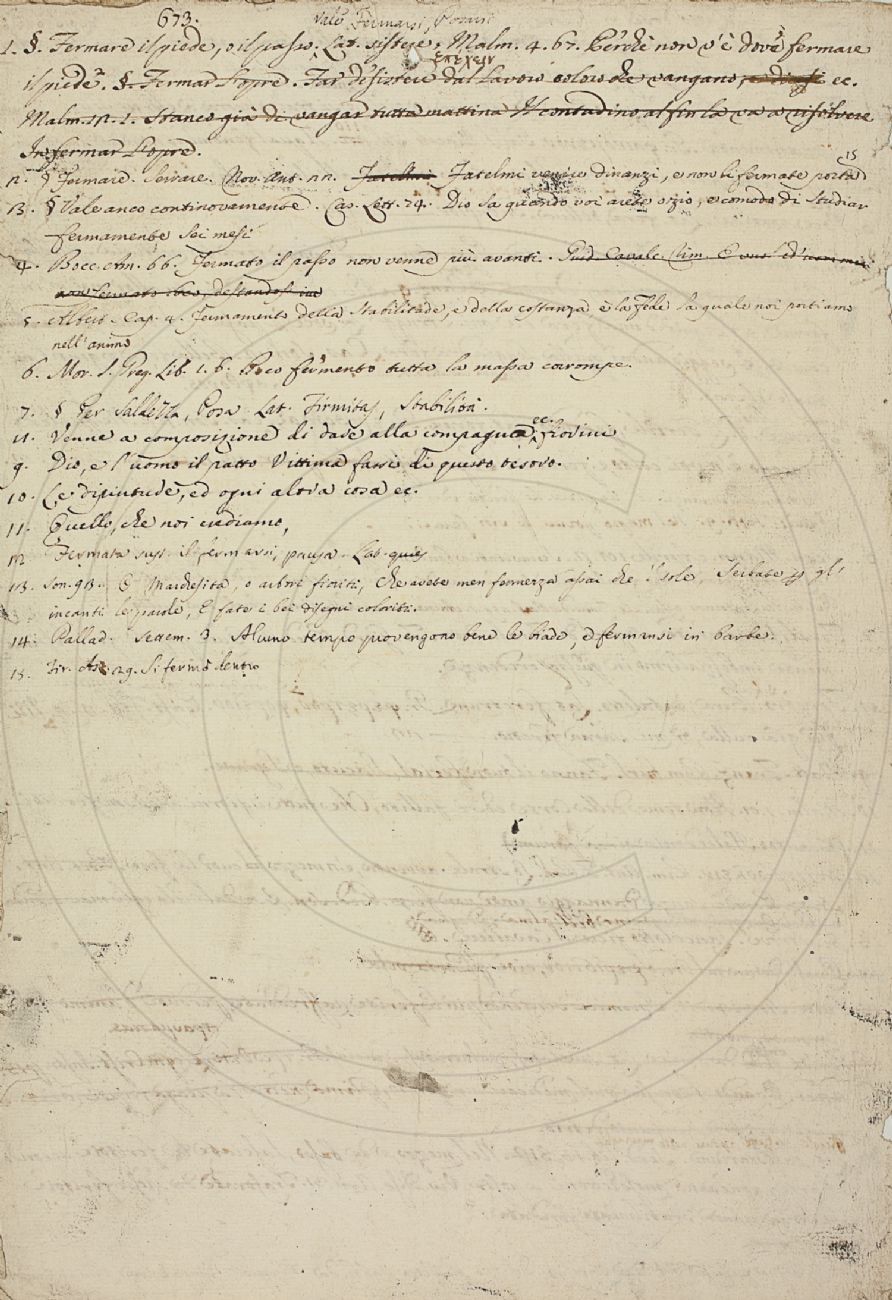 673.
Vale Fermarsi, Posarsi
1. §. Fermare il piede, o il passo. Lat. sistere. Malm. 4. 67. Perchè non v'è dove fermare
ἐπέχειν
il piede. §. Fermar l'opre. Far desistere dal lavoro coloro che vangano, ec.
Malm. 1. Stanco già di vangar tutta mattina Il contadino al fin la va a risolvere
In fermar l'opre.
2. § Fermare. Serrare. Nov. Ant. Fatelmi venire dinanzi, e non li fermate porta
15
3. § Vale anco continovamente. Cas. Lett. 74. Dio sa quando voi arete ozio, e comodo di studiar
fermamente sei mesi
4. Bocc. Am. 66. Fermato il passo non venne più avanti. Guid. Cavalc. Rim.
5. Albert. Cap. 4. Fermamento della stabilitade, e della costanza, è la fede la quale noi portiamo
nell'animo
6. Mor. S. Greg. Lib. 1. 6. Poco fermento tutta la massa corrompe.
7. § Per Saldezza, Posa. Lat. Firmitas, Stabilità.
Venne a composizione di dare alla compagnia ec. Fiorini
9. Dio, e l'uomo il patto Vittima farsi di questo tesoro.
10. Le dipinture, ed ogni altra cosa ec.
11. Quello, che noi crediamo,
12 Fermata sust. il fermarsi, pausa. Lat. quies
13. Son. 93. O Marchesita, o arbori fioriti, Che avete men fermezza assai che 'l sole, Serbate gli
incanti le parole, E fate i bei disegni coloriti.
14. Pallad. Settem. 3. Alcuno tempo provengono bene le biade, e fermansi in barbe.
15. Fir. As. 29. Si fermò dentro